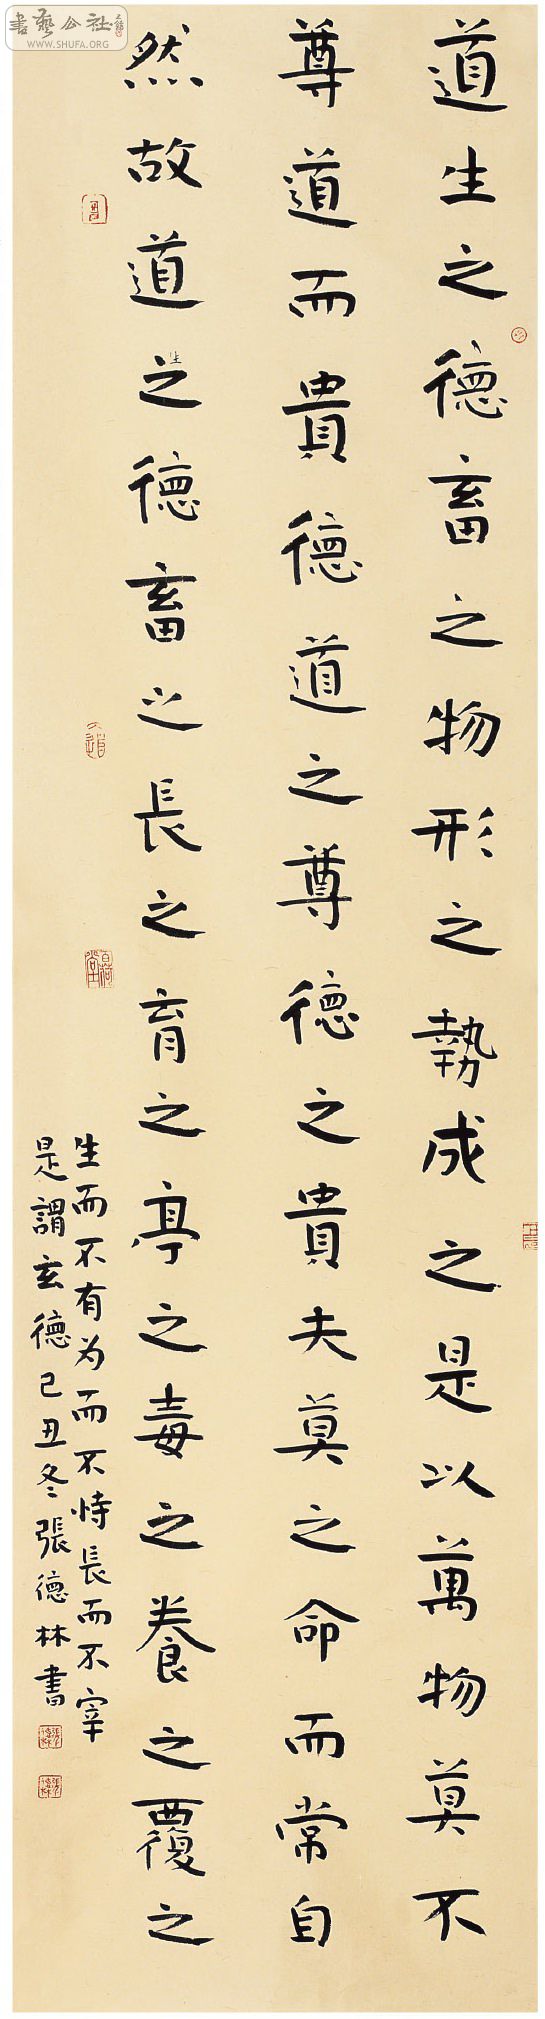 道生之德畜之物形之勢成之是以萬物莫不
尊道而貴德道之尊德之貴夫莫之命而常自
然故道生之德畜之長之育之亭之毒之養之覆之
生而不有为而不恃長而不宰
是謂玄德己丑冬張德林書
書藝公社
WWW.SHUFA.ORG